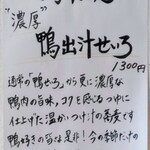 "濃厚"
鴨出汁せいろ
1300円
通常の「鴨せいろ」から更に濃厚な
鴨肉の旨味、コクを感じるつゆに
仕上げた温かいつけ汁の蕎麦です
鴨好きの方は是非!今の季節だけの